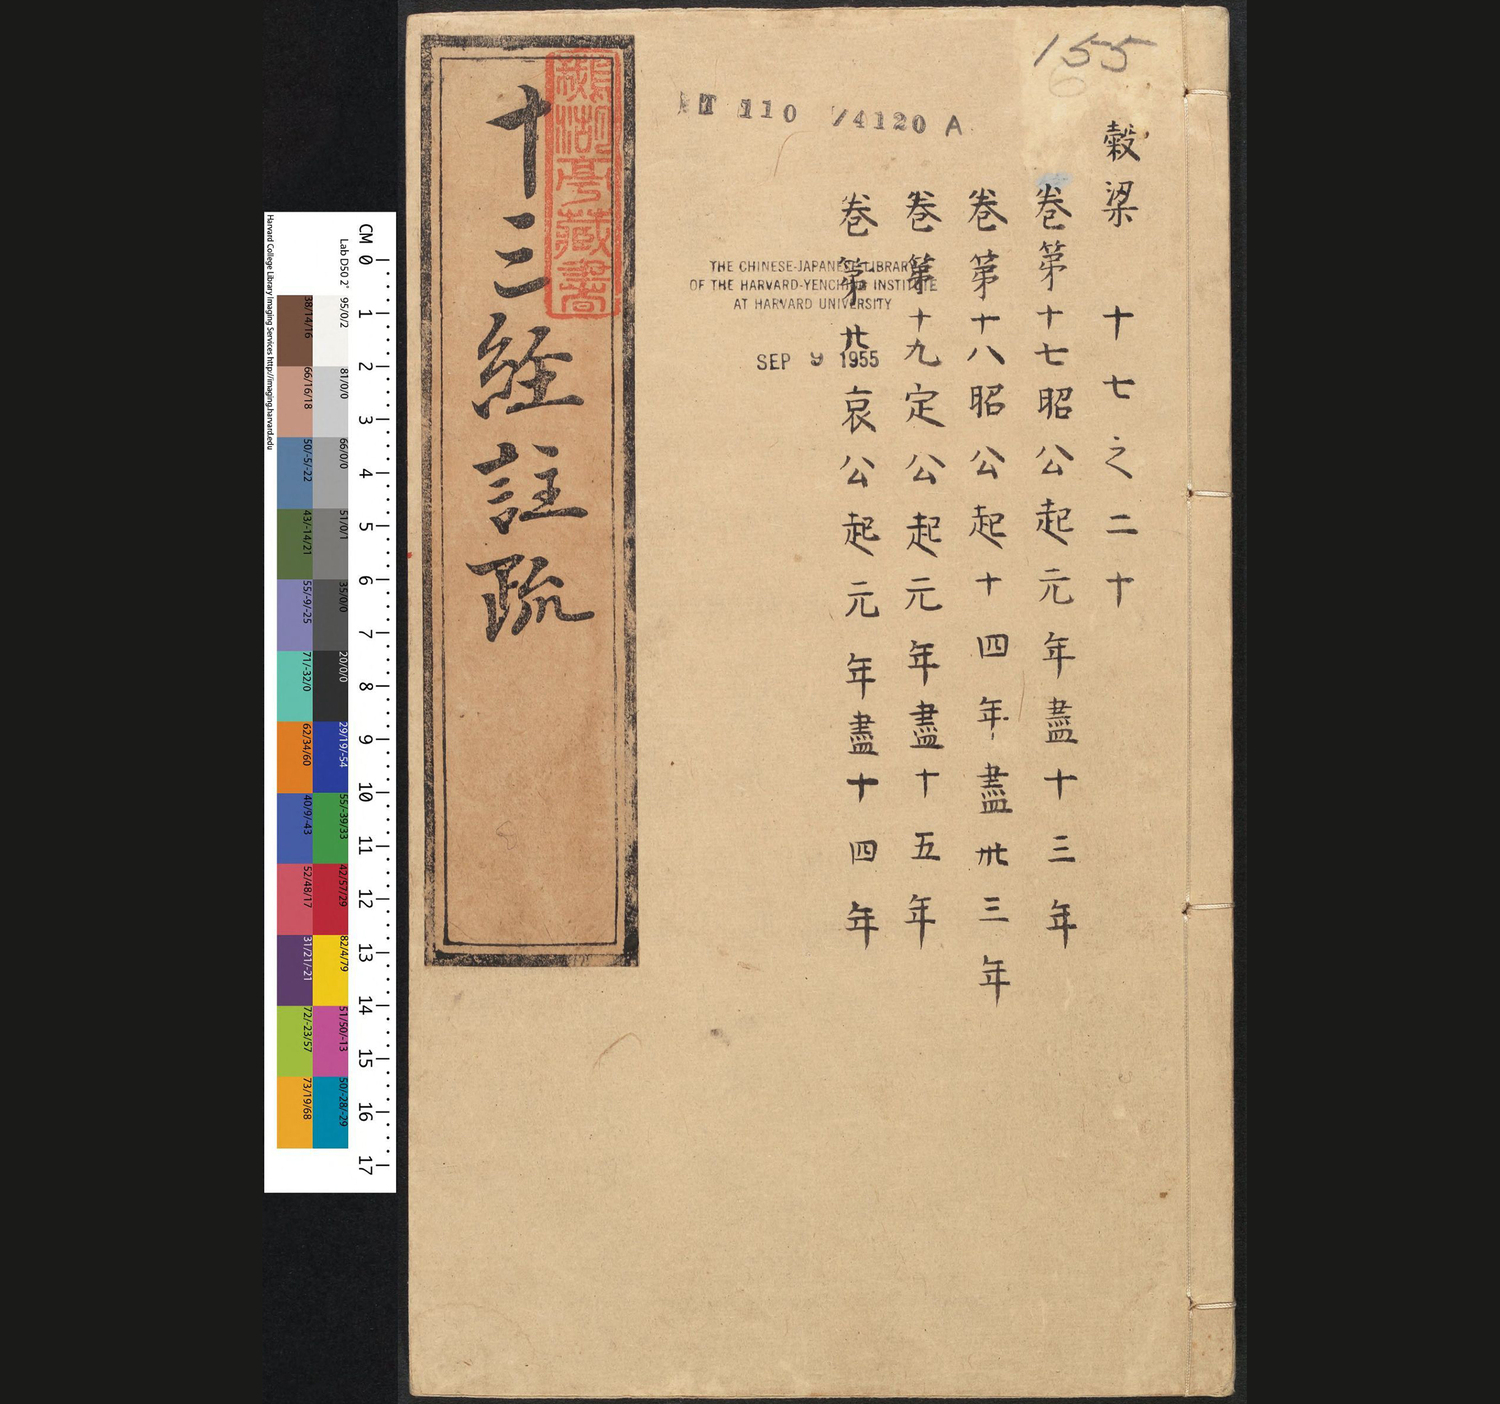 155
6
T 110 /4120 A
穀梁 十七之二十
卷第十七昭公起元年盡十三年
卷第十八昭公起十四年盡卅三年
卷第十九定公起元年盡十五年
卷第廿哀公起元年盡十四年
THE CHINESE-JAPANESE LIBRARY
OF THE HARVARD-YENCHING INSTITUTE
AT HARVARD UNIVERSITY
SEP 9 1955
十三經註疏
亭藏書
CM 0 1 2 3 4 5 6 7 8 9 10 11 12 13 14 15 16 17
Lab D50 2°
95/0/2
81/0/0
66/0/0
51/0/1
35/0/0
20/0/0
29/19/-54
55/-39/33
42/57/29
82/4/79
51/50/-13
50/-28/-29
38/14/16
66/16/18
50/-5/-22
43/-14/21
55/-9/-25
71/-32/0
62/34/60
40/9/-43
52/48/17
31/21/-21
72/-23/57
73/19/68
Harvard College Library Imaging Services http://imaging.harvard.edu